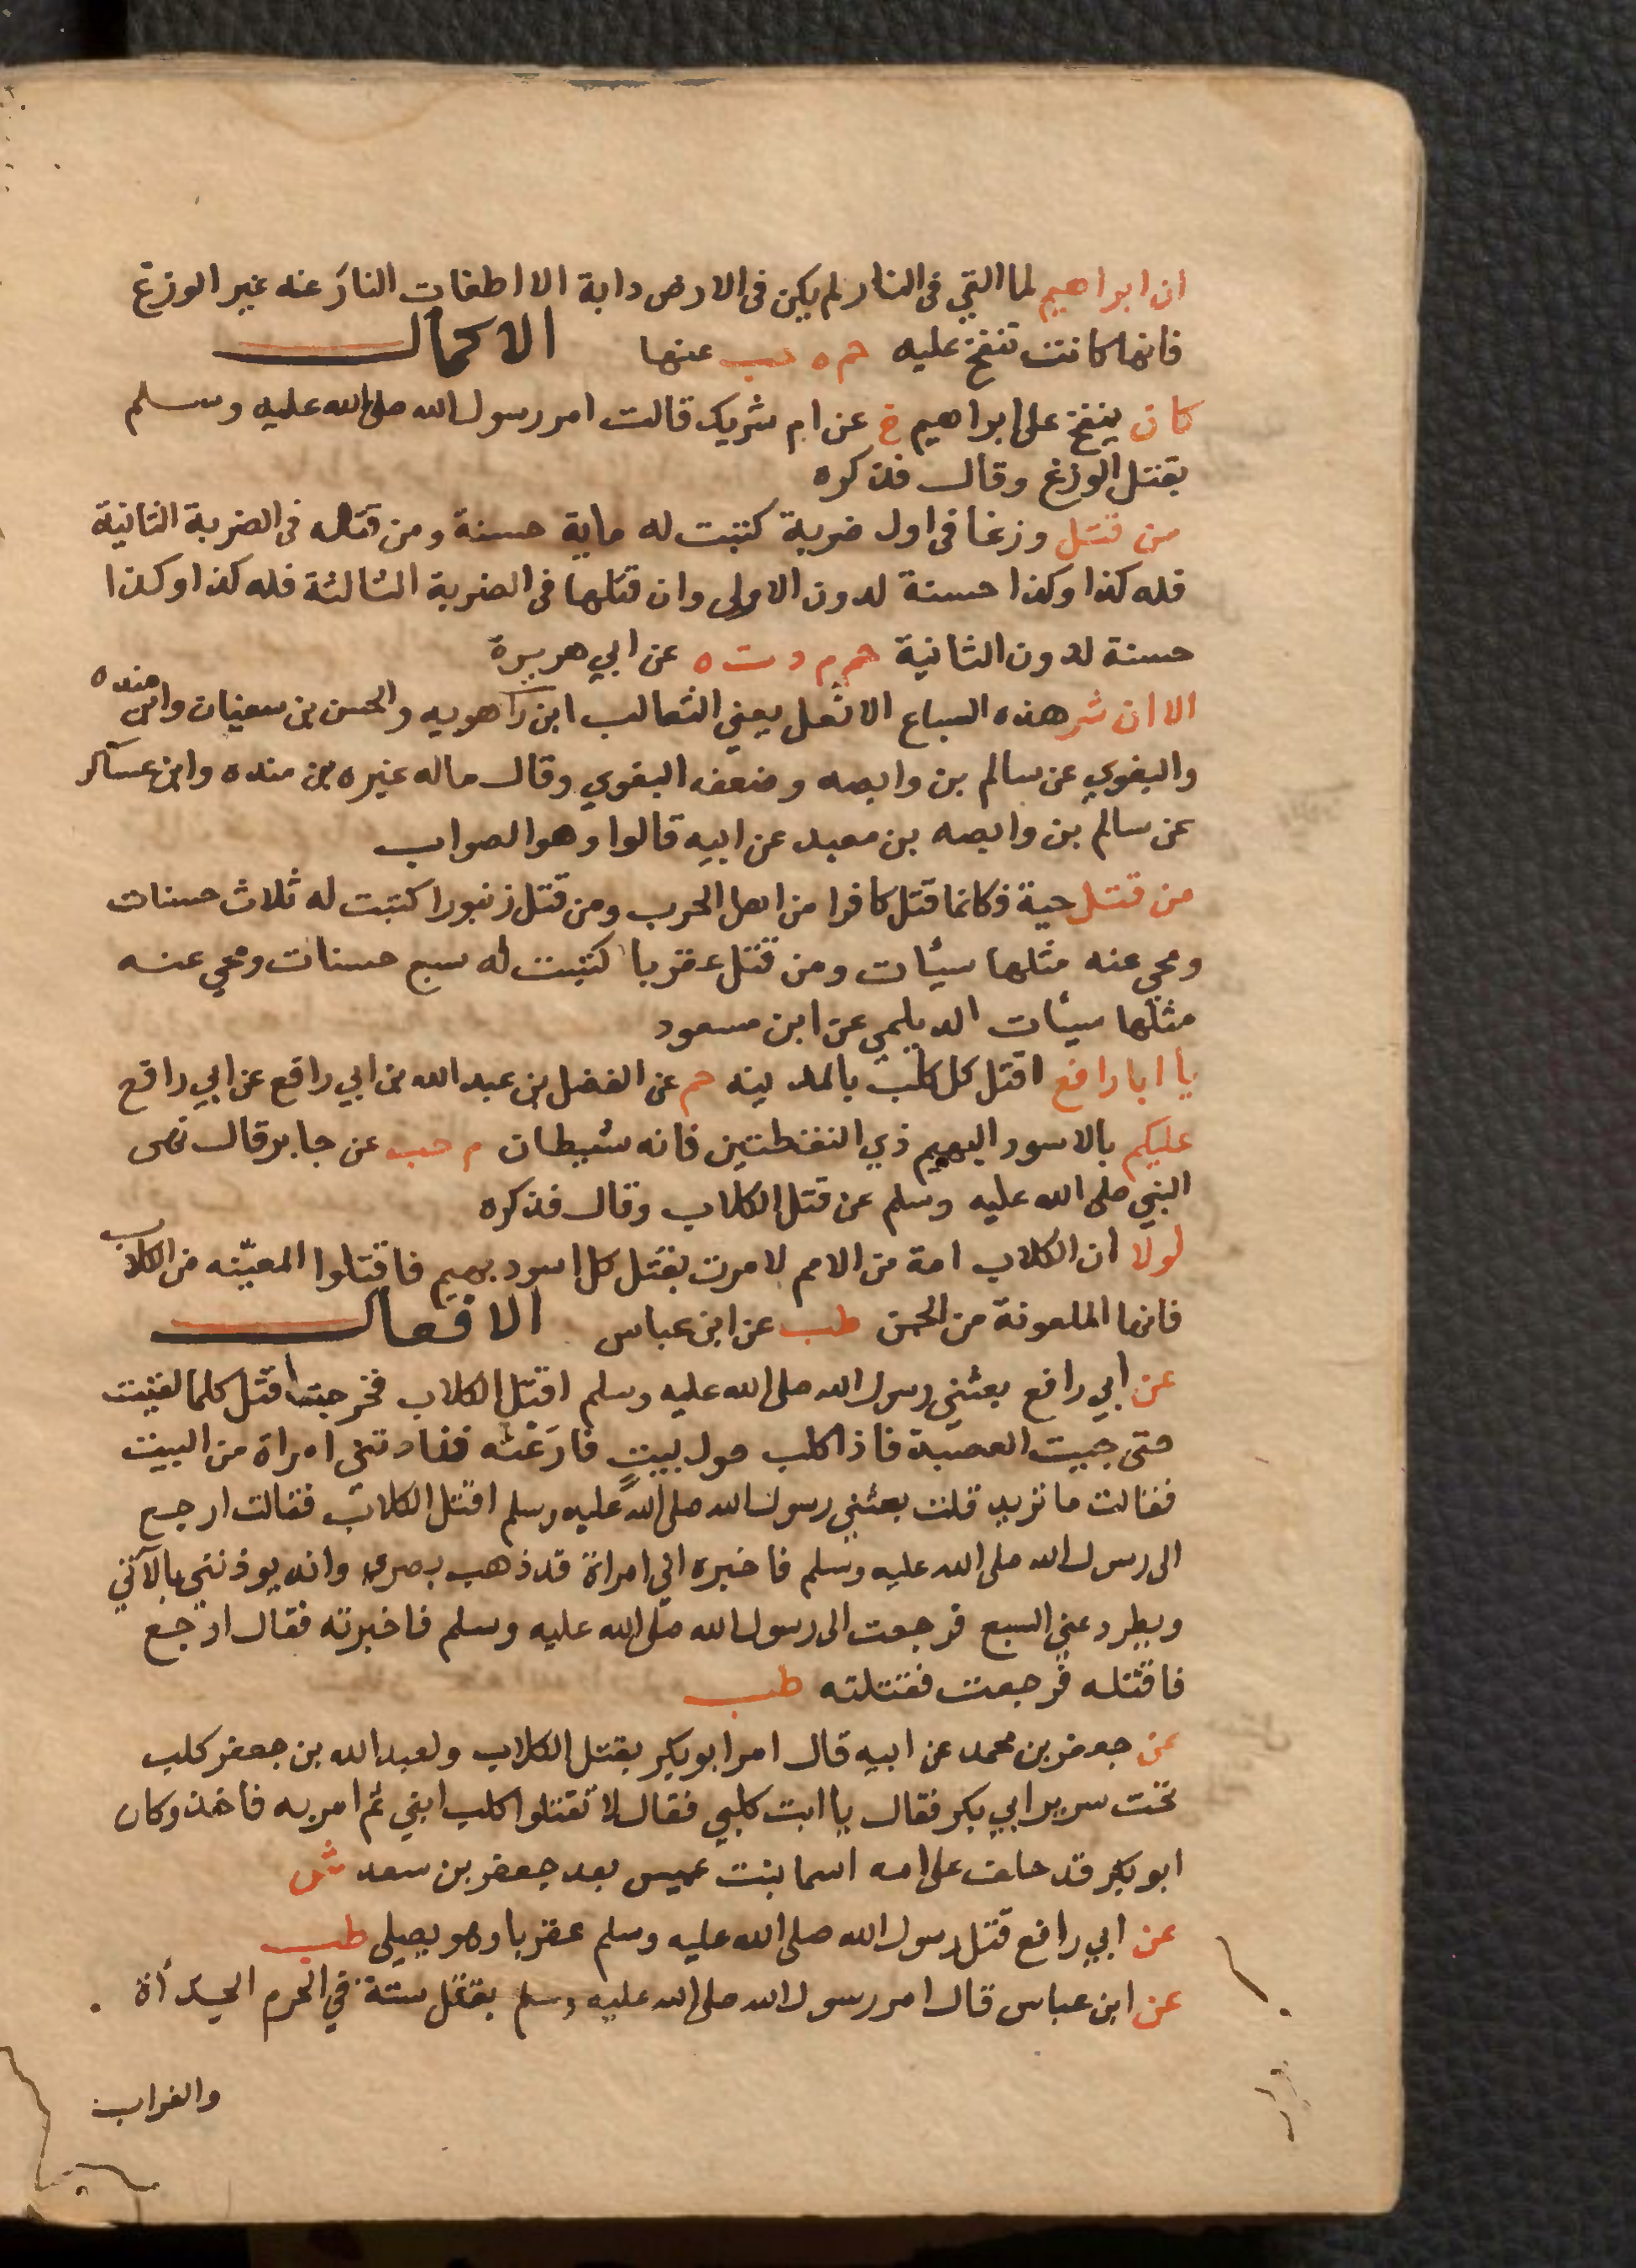 ان ابراهيم لما القي فى النار لم يكن فى الارض دابة الا اطفات النار عنه غير الوزغ
فانها كانت تنفخ عليه حم ه حب عنها الاكمال
كان ينفخ على ابراهيم خ عن ام شريك قالت امر رسول الله صلى الله عليه وسلم
بقتل الوزغ وقال فذكره
من قتل وزغا فى اول ضربة كتبت له ماية حسنة ومن قتله فى الضربة الثانية
فله كذا وكذا حسنة لدون الاولى وان قتلها فى الضربة الثالثة فله كذا وكذا
حسنة لدون الثانية حم م د ت ه عن ابي هريرة
الا ان شر هذه السباع الاثعل يعني الثعالب ابن راهويه والحسن بن سفيان وابن منده
والبغوي عن سالم بن وابصه وضعفه البغوي وقال ماله غيره بن منده وابن عساكر
عن سالم بن وابصه بن معبد عن ابيه قالوا وهو الصواب
من قتل حية فكانما قتل كافرا من اهل الحرب ومن قتل زنبورا كتبت له ثلاث حسنات
ومحي عنه مثلها سيئات ومن قتل عقربا كتبت له سبع حسنات ومحي عنه
مثلها سيئات الديلمي عن ابن مسعود
يا ابا رافع اقتل كل كلب بالمدينه حم عن الفضل بن عبد الله بن ابي رافع عن ابي رافع
عليكم بالاسود البهيم ذي النقطتين فانه شيطان م حب عن جابر قال نهى
النبي صلى الله عليه وسلم عن قتل الكلاب وقال فذكره
لولا ان الكلاب امة من الامم لامرت بقتل كل اسود بهيم فاقتلوا المعينه من الكلاب
فانها الملعونة من الجن طب عن ابن عباس الافعال
عن ابي رافع بعثني رسول الله صلى الله عليه وسلم اقتل الكلاب فخرجت اقتل كلما لقيت
حتى جيت العصبة فاذا كلب حول بيت فارغته فنادتني امراة من البيت
فقالت ما تريد قلت بعثني رسول الله صلى الله عليه وسلم اقتل الكلاب فقالت ارجع
الى رسول الله صلى الله عليه وسلم فاخبره اني امراة قد ذهب بصري وانه يوذنني بالآتي
ويطرد عني السبع فرجعت الى رسول الله صلى الله عليه وسلم فاخبرته فقال ارجع
فاقتله فرجعت فقتلته طب
عن جعفر بن محمد عن ابيه قال امر ابو بكر بقتل الكلاب ولعبد الله بن جعفر كلب
تحت سرير ابي بكر فقال يا ابت كلبي فقال لا تقتلوا كلب ابني ثم امر به فاخذ وكان
ابو بكر قد خلف على امه اسما بنت عميس بعد جعفر بن سعد ش
عن ابي رافع قتل رسول الله صلى الله عليه وسلم عقربا وهو يصلى طب
عن ابن عباس قال امر رسول الله صلى الله عليه وسلم بقتل ستة في الحرم الحدأة
والغراب